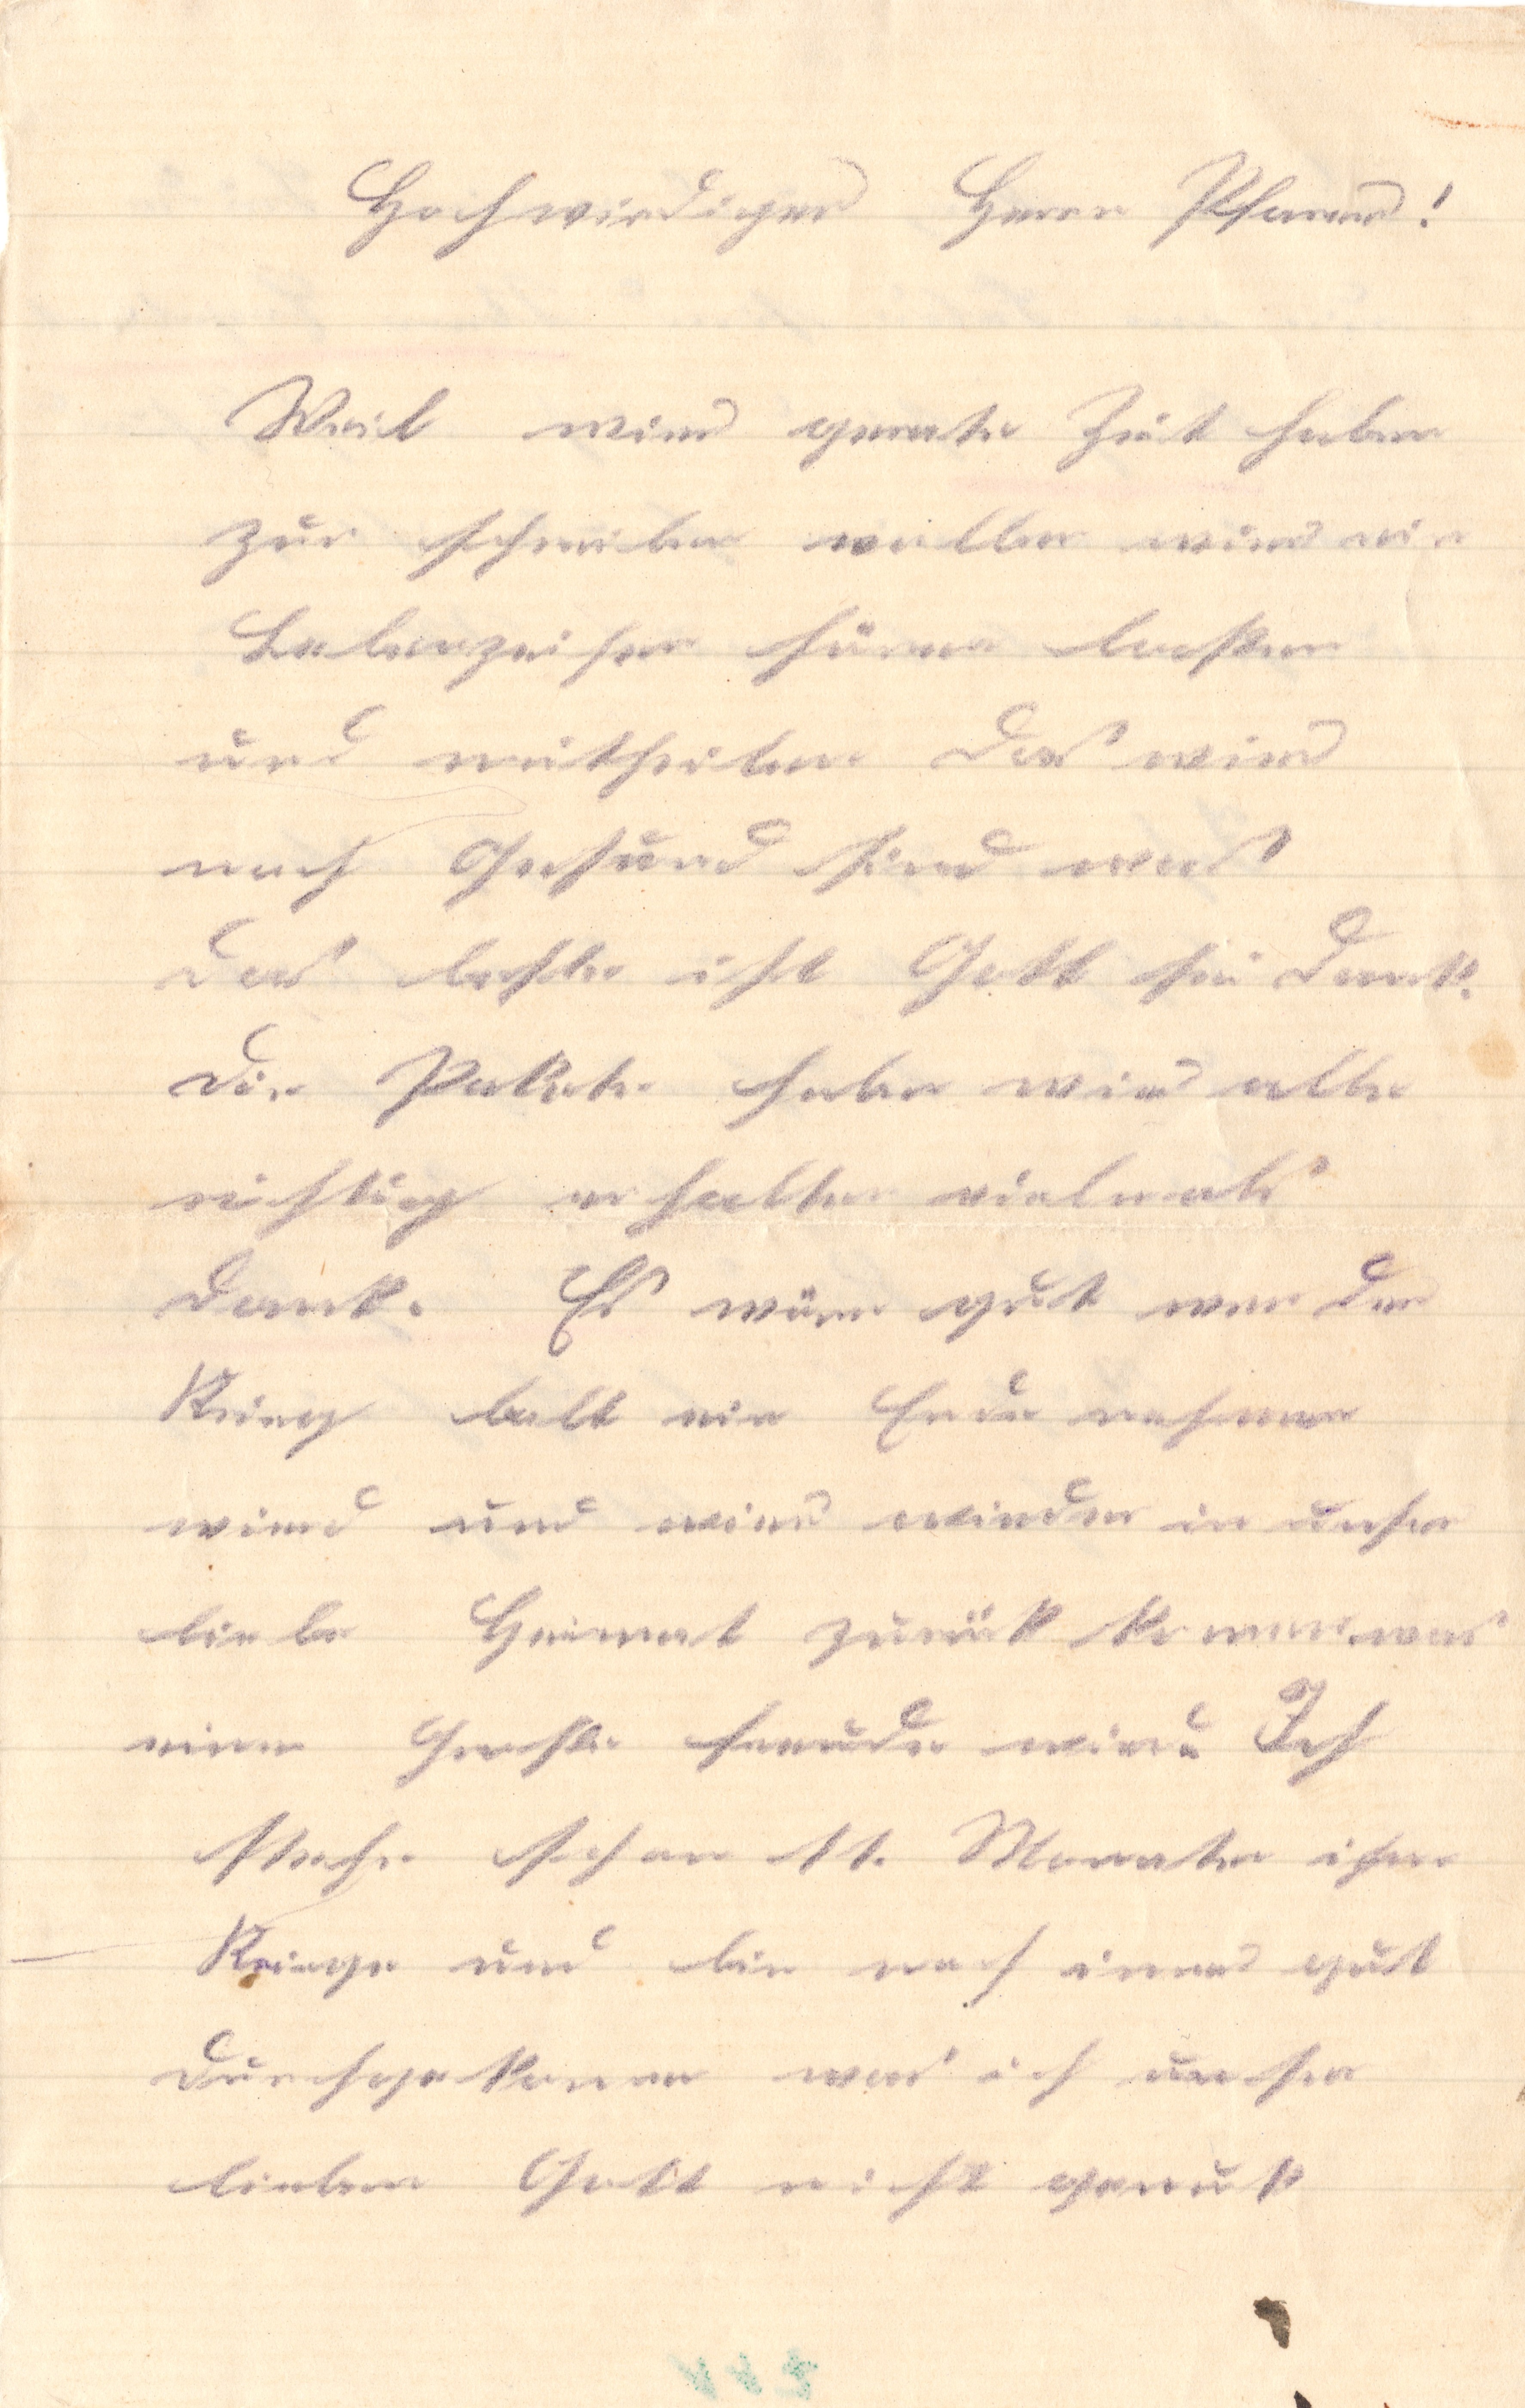 Hochwirdiger Herr Pfarrer!
Weil wier gerate Zeit haben
zur schreiben wollen wier ein
Lebenzeichen hären laßen
und mitheilen das wier
noch Gesund sind was
das beste ist Gott sei dank.
die Pakete haben wier alle
richtig erhalten vielmals
dank. Es wäre gut wen der
Krieg balt ein Ende nehmen
wierd und wier wieder in unser
liebe Heimat zurük komen was
eine Große freude wierd Ich
stehe schon 11. Monate ihm
Kriege und bin noch imer gut
durchgekomen was ich unser
lieben Gott nicht genuk